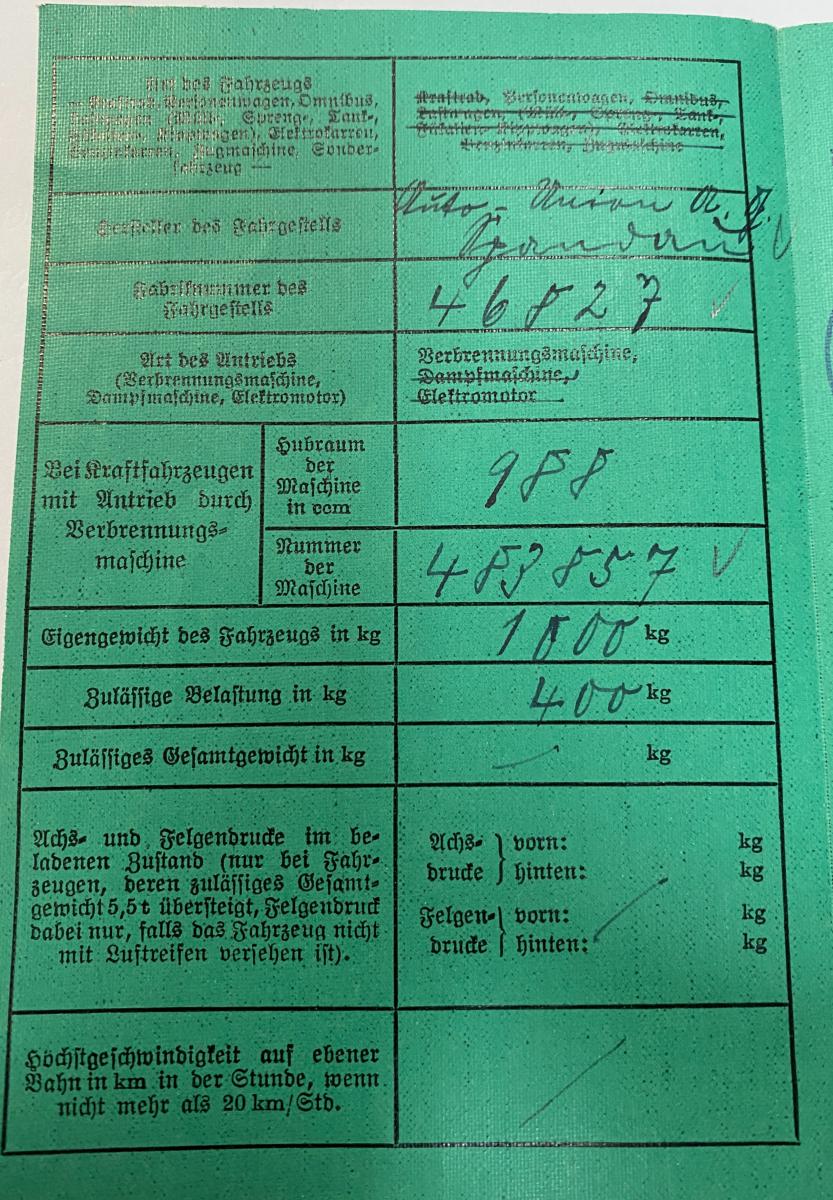 Art des Fahrzeugs
— Kraftrad, Personenwagen, Omnibus,
Lastwagen (Müll-, Spreng-, Tank-,
Fäkalien-, Kippwagen), Elektrokarren,
Benzinkarren, Zugmaschine, Sonder-
fahrzeug —
Kraftrad, Personenwagen, Omnibus,
Lastwagen (Müll-, Spreng-, Tank-,
Fäkalien-, Kippwagen), Elektrokarren,
Benzinkarren, Zugmaschine
Hersteller des Fahrgestells
Auto-Union A. G.
Spandau
Fabriknummer des
Fahrgestells
46827
Art des Antriebs
(Verbrennungsmaschine,
Dampfmaschine, Elektromotor)
Verbrennungsmaschine,
Dampfmaschine,
Elektromotor
Bei Kraftfahrzeugen
mit Antrieb durch
Verbrennungs-
maschine
Hubraum
der
Maschine
in ccm
988
Nummer
der
Maschine
483857
Eigengewicht des Fahrzeugs in kg
1000 kg
Zulässige Belastung in kg
400 kg
Zulässiges Gesamtgewicht in kg
kg
Achs- und Felgendrucke im be-
ladenen Zustand (nur bei Fahr-
zeugen, deren zulässiges Gesamt-
gewicht 5,5 t übersteigt, Felgendruck
dabei nur, falls das Fahrzeug nicht
mit Luftreifen versehen ist).
Achs- } vorn: kg
drucke } hinten: kg
Felgen- } vorn: kg
drucke } hinten: kg
Höchstgeschwindigkeit auf ebener
Bahn in km in der Stunde, wenn
nicht mehr als 20 km/Std.